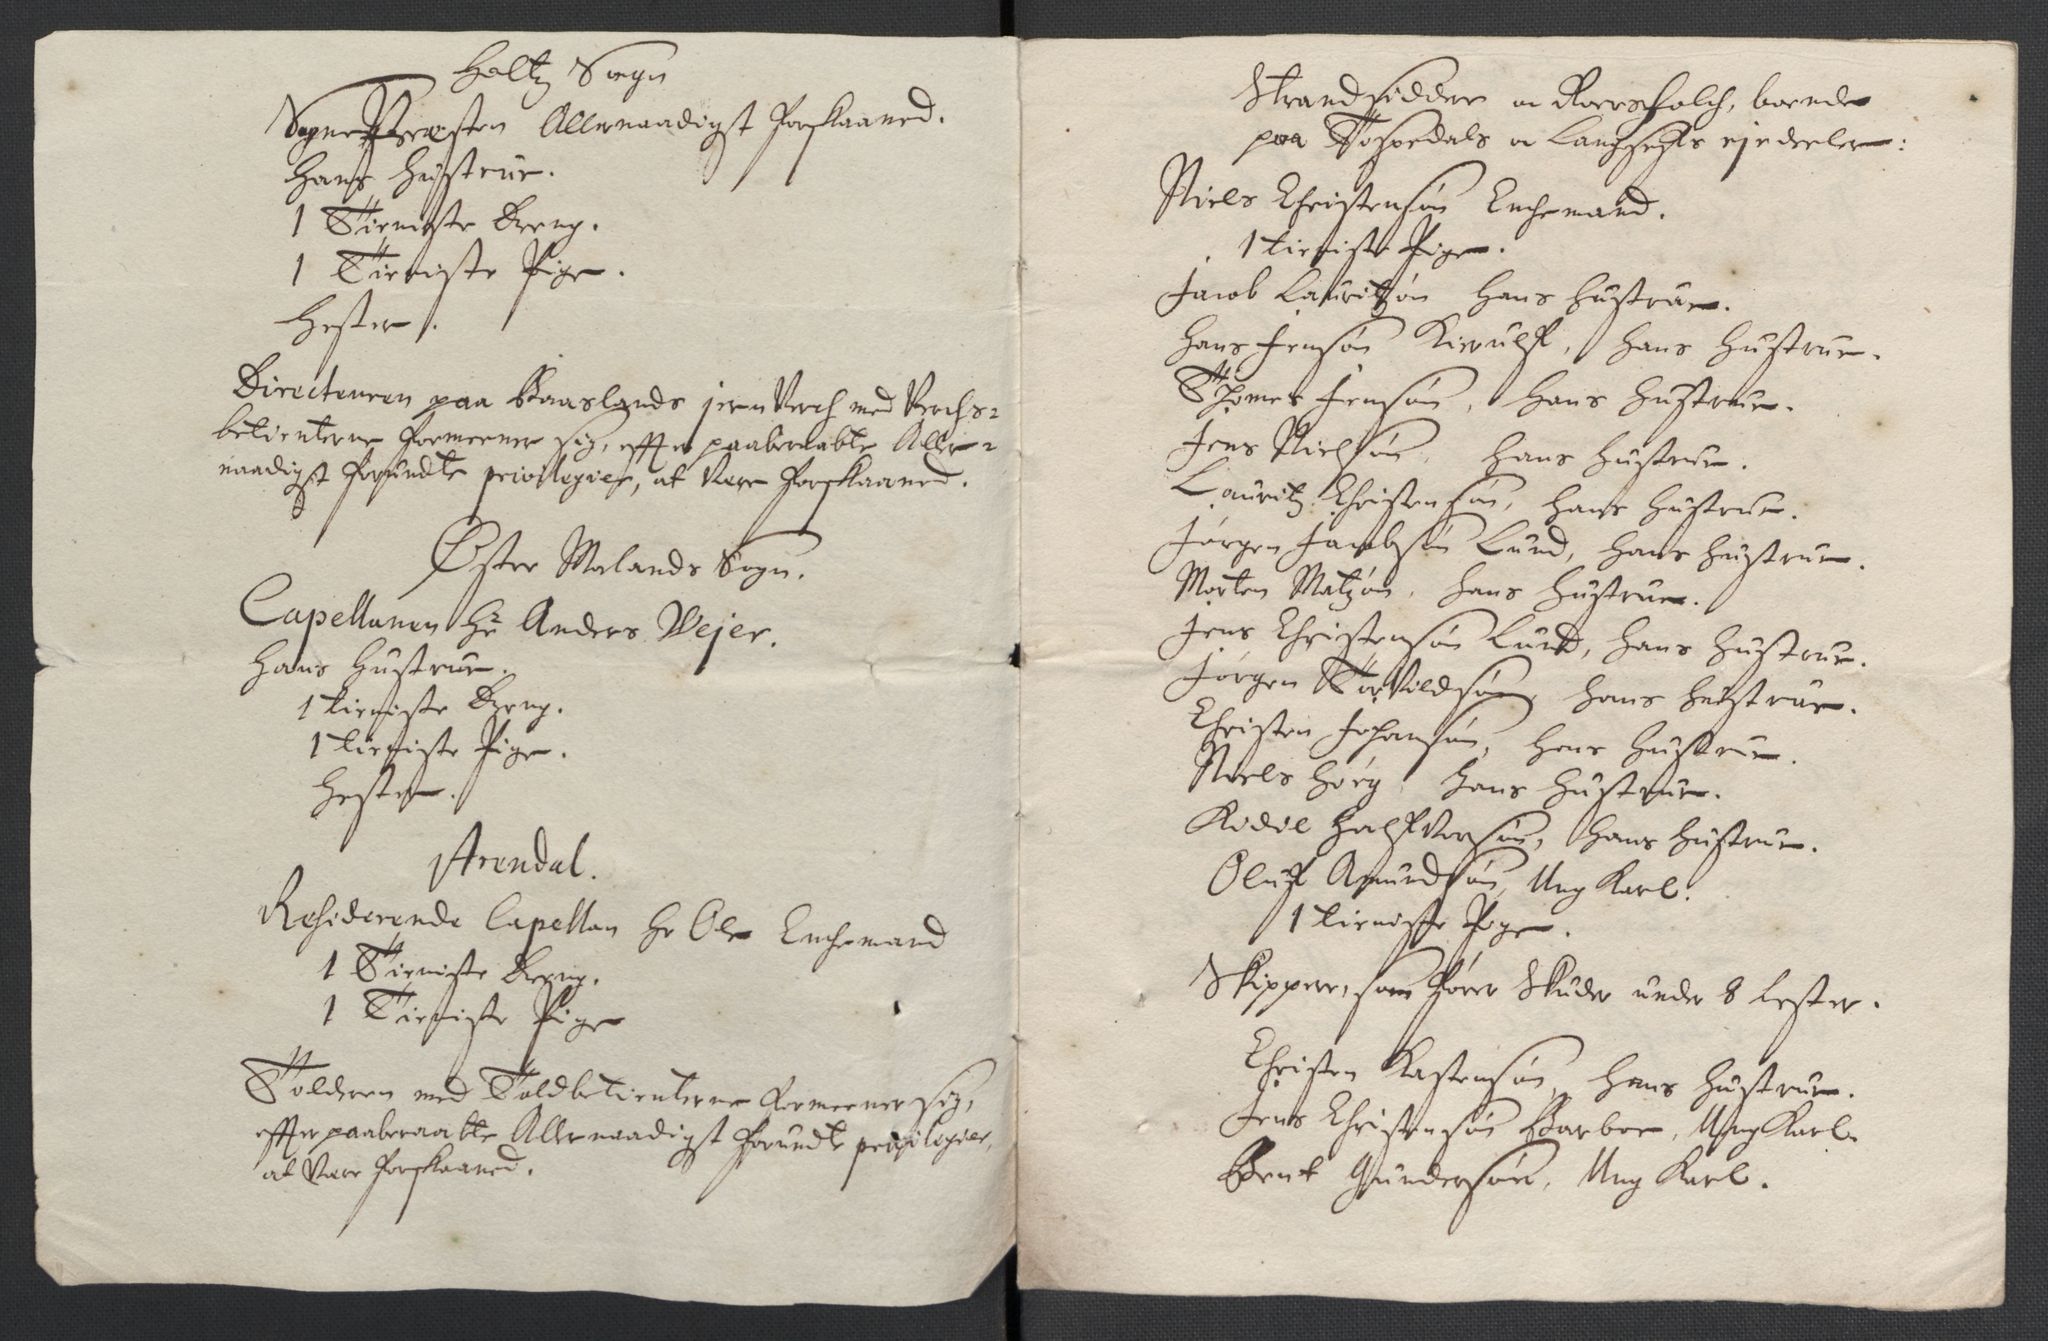 Holtz Sogn
SognePresten Allernaadigst forskaaned.
Hans Hustrue.
1 Tieniste Dreng.
1 Tieniste Pige.
Hester.
Directeuren paa Baaslands jernVerch med Verchs-
betienterne formeener sig, effter paaberaabte Aller-
naadigst forundte privilegier, at Være forskaaned.
Øster Molands Sogn.
Capellanen Hr Anders Vejer.
Hans Hustrue.
1 tieniste Dreng.
1 tieniste Pige.
Hester.
Arendal.
Residerende Capellan Hr Ole Enchemand
1 Tieniste Dreng.
1 Tieniste Pige
Tolderen med Toldbetienterne formeener sig,
effter paaberaabte Allernaadigst forundte privilegier,
at Være forskaaned.
Strandsidder og Roersfolch, boende
paa Tospedals og Langsefs ejedeeler:
Niels Christensøn Enchemand.
1 tieniste Pige.
Jacob Lauritzøn Hans Hustrue.
Hans Jensøn Kierulf, Hans Hustrue.
Thomes Jensøn, Hans Hustrue.
Jens Nielsøn, Hans Hustrue.
Lauritz Christensøn, Hans Hustrue.
Jørgen Jacobsøn Lund, Hans Hustrue.
Morten Matzøn, Hans Hustrue.
Jens Christensøn Lund, Hans Hustrue.
Jørgen Torkildsøn, Hans Hustrue.
Christen Johansøn, Hans Hustrue.
Niels Høeg, Hans Hustrue.
Kidil Halfvorsøn, Hans Hustrue.
Oluf Amundsøn, Ung Karl.
1 tieniste Pige.
Skippere, som fører Skuder under 8 Lester.
Christen Kastensøn, Hans Hustrue.
Jens Christensøn Barboe, Ung Karl.
Bent Gundersøn, Ung Karl.